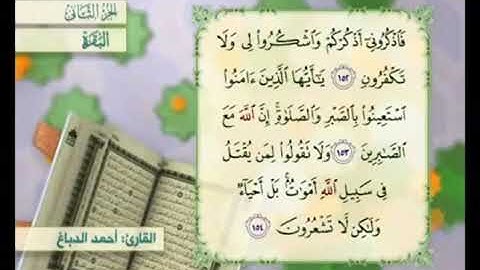 الجزء الثاني
البقرة
فَاذْكُرُونِي أَذْكُرْكُمْ وَاشْكُرُوا لِي وَلَا
تَكْفُرُونِ ١٥٢ يَا أَيُّهَا الَّذِينَ ءَامَنُوا
اسْتَعِينُوا بِالصَّبْرِ وَالصَّلَوٰةِ إِنَّ اللَّهَ مَعَ
الصَّابِرِينَ ١٥٣ وَلَا تَقُولُوا لِمَن يُقْتَلُ
فِي سَبِيلِ اللَّهِ أَمْوَاتٌ بَلْ أَحْيَاءٌ
وَلَٰكِن لَّا تَشْعُرُونَ ١٥٤
القارئ: أحمد الدباغ